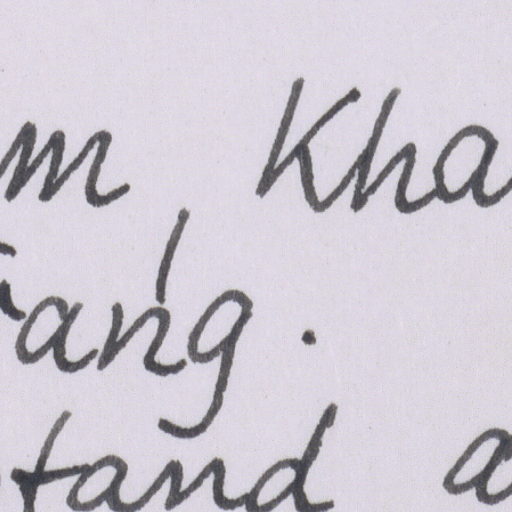 m, Kha
ang.
tand a